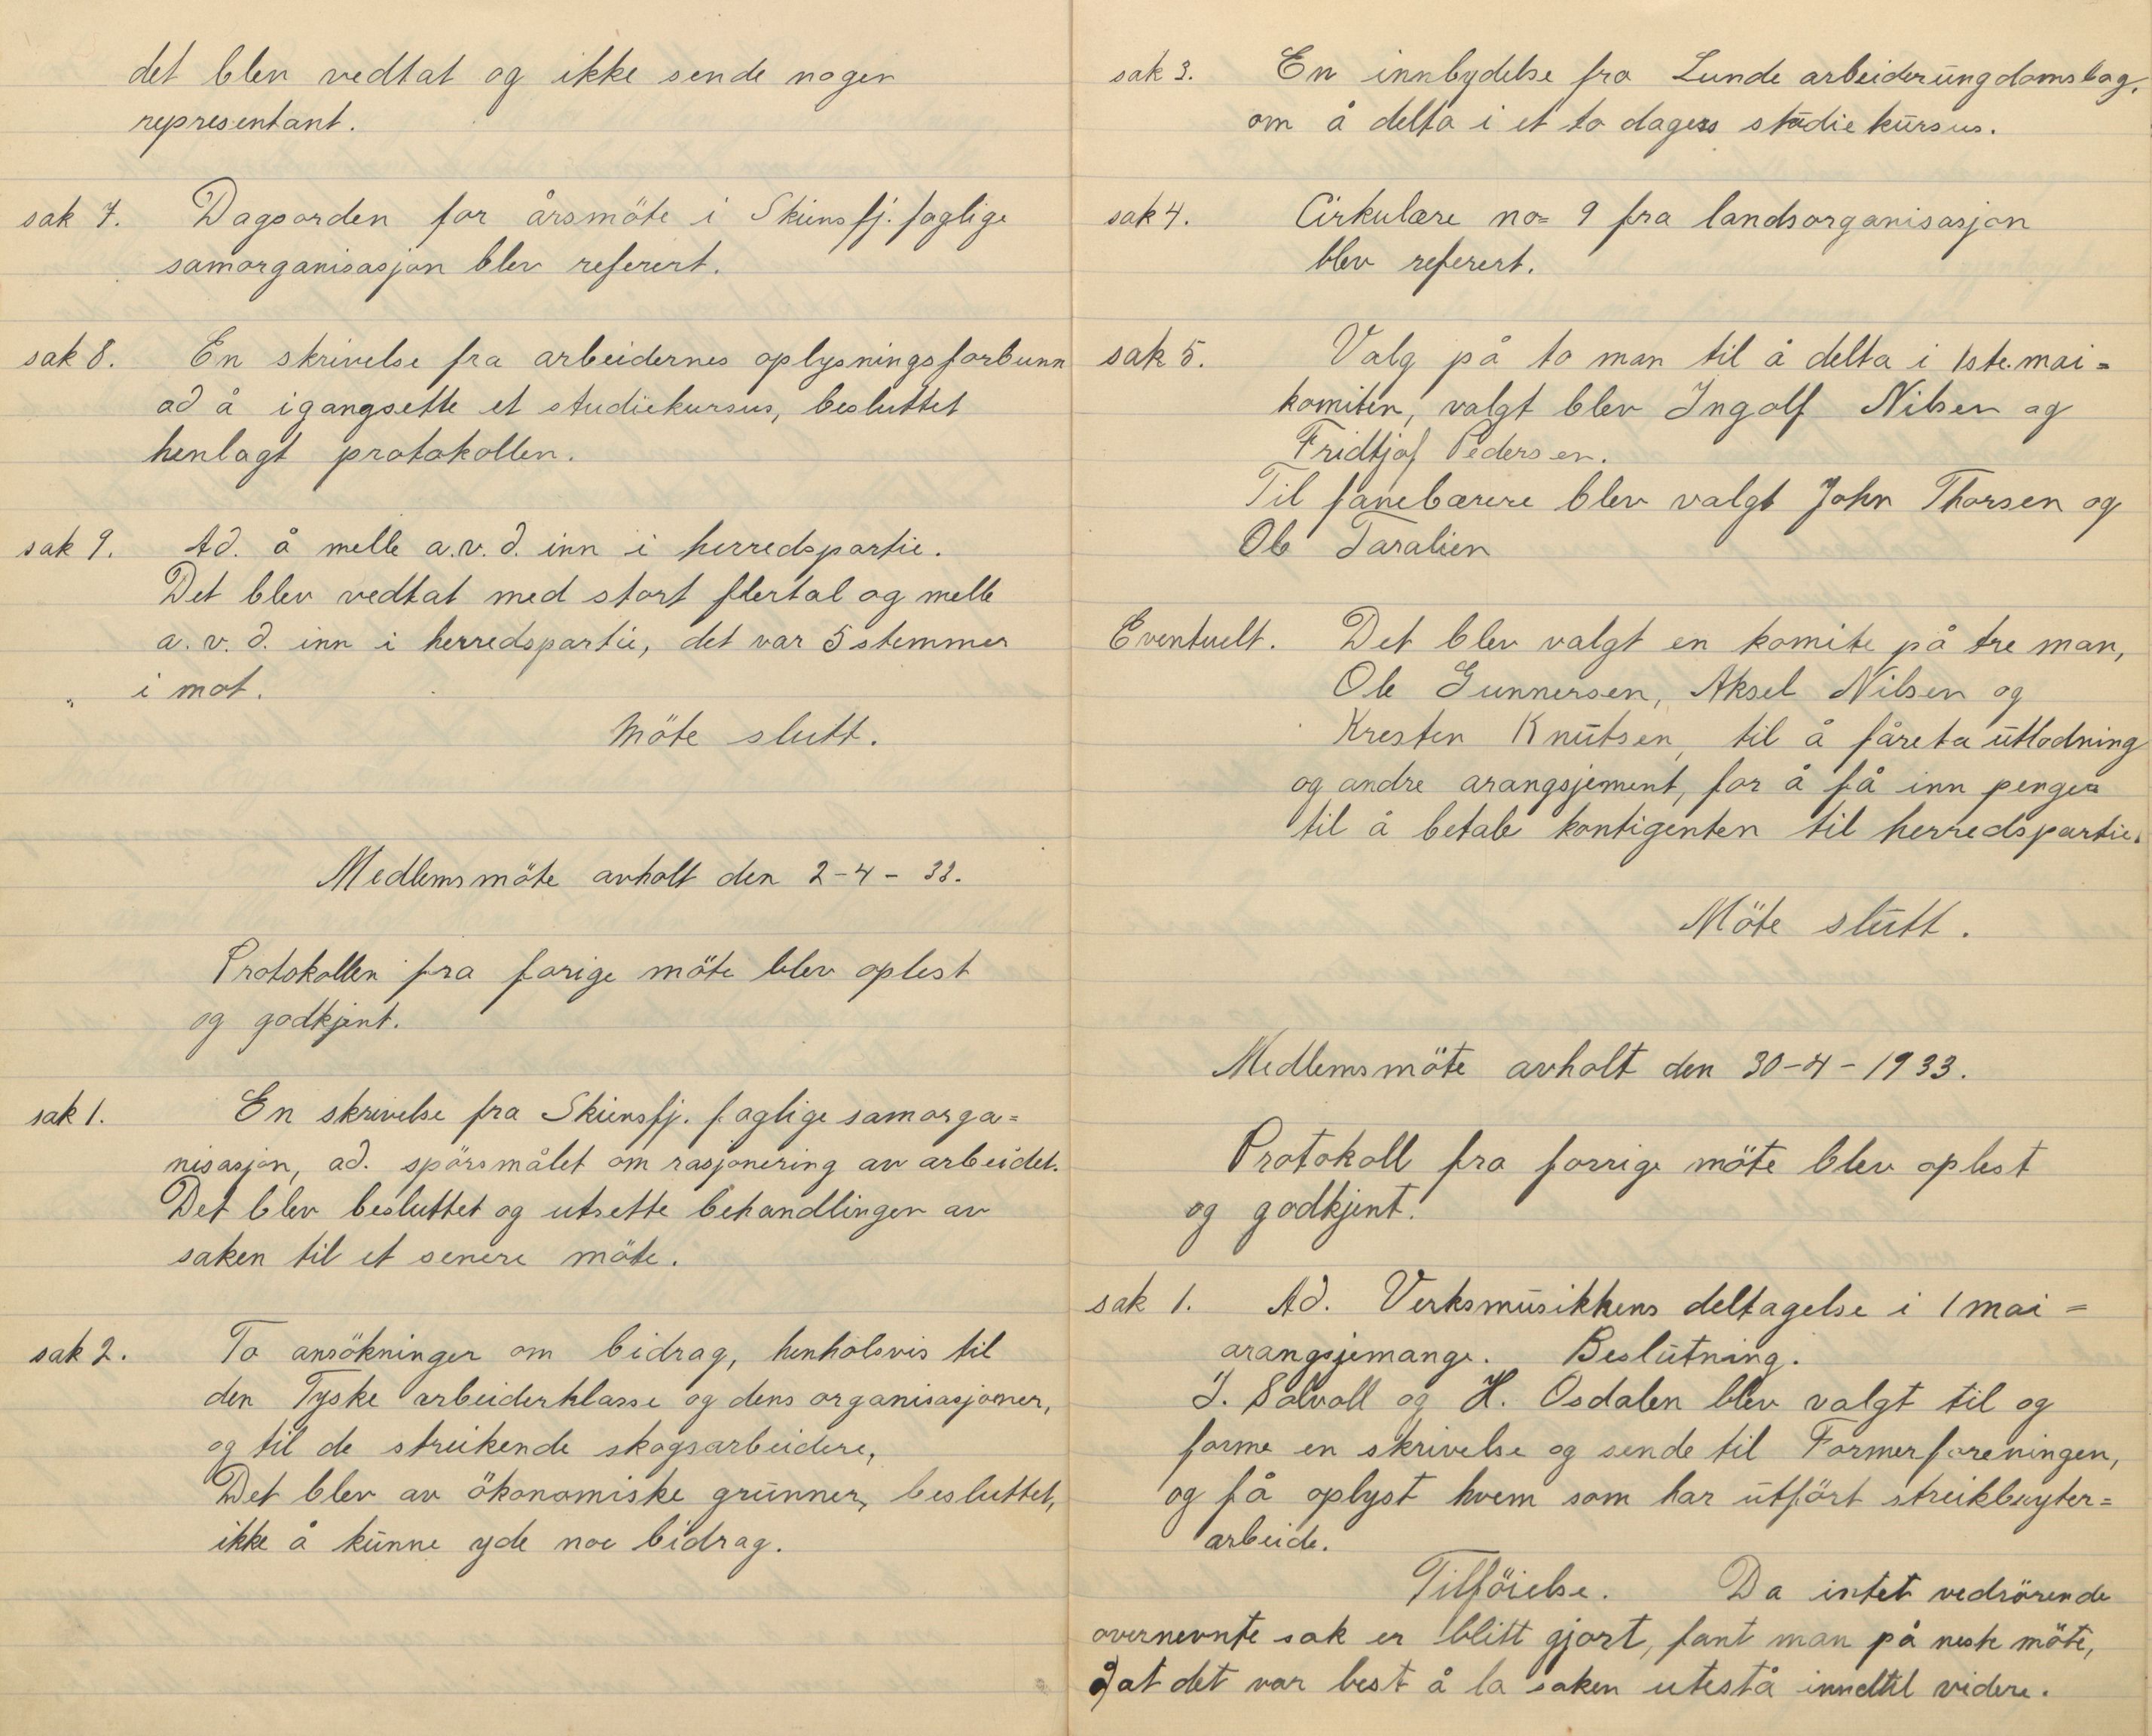 det blev vedtat og ikke sende nogen
representant.
sak 7. Dagsorden for årsmöte i Skiensfj. faglige
samorganisasjon blev referert.
sak 8. En skrivelse fra arbeidernes oplysningsforbunn
ad å igangsette et studiekursus, besluttet
henlagt protokollen.
sak 9. Ad. å melle a.v.d. inn i herredspartie.
Det blev vedtat med stort flertal og melle
a.v.d. inn i herredspartie, det var 5 stemmer
i mot.
Möte slutt.
Medlemsmöte avholt den 2-4-33.
Protokollen fra forige möte blev oplest
og godkjent.
sak 1. En skrivelse fra Skiensfj. faglige samorga=
nisasjon, ad. spörsmålet om rasjonering av arbeidet.
Det blev besluttet og utsette behandlingen av
saken til et senere möte.
sak 2. To ansökninger om bidrag, henholsvis til
den Tyske arbeiderklasse og dens organisasjoner,
og til de streikende skogsarbeidere,
Det blev av ökonomiske grunner, besluttet,
ikke å kunne yde noe bidrag.
sak 3. En innbydelse fra Lunde arbeiderungdomslag,
om å delta i et to dagers studiekursus.
sak 4. Cirkulære no= 9 fra landsorganisasjon
blev referert.
sak 5. Valg på to man til å delta i 1ste. mai=
komiten, valgt blev Ingolf Nilsen og
Fridtjof Pedersen.
Til fanebærere blev valgt John Thorsen og
Ole Taralien
Eventuelt. Det blev valgt en komite på tre man,
Ole Gunnersen, Aksel Nilsen og
Kresten Knutsen, til å fåreta utlodning
og andre arangsjement, for å få inn penger
til å betale kontigenten til herredspartie.
Möte slutt.
Medlemsmöte avholt den 30-4-1933.
Protokoll fra forrige möte blev oplest
og godkjent.
sak 1. Ad. Verksmusikkens deltagelse i 1 mai=
arangsjemange. Beslutning.
I. Solvoll og H. Osdalen blev valgt til og
forme en skrivelse og sende til Formerforeningen,
og få oplyst hvem som har utfört streikbryter=
arbeide.
Tilföielse. Da intet vedrörende
overnevnte sak er blitt gjort, fant man på neste möte,
at det var best å la saken utestå inndtil videre.